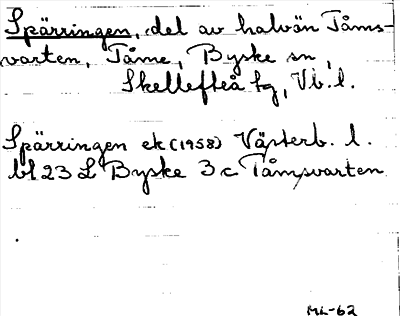 Spärringen, del av halvön Tåms-
varten, Tåme, Byske sn,
Skellefteå tg, Vb. l.
Spärringen ek (1958) Västerb. l.
bl 23 L Byske 3 c Tåmsvarten
ML-62